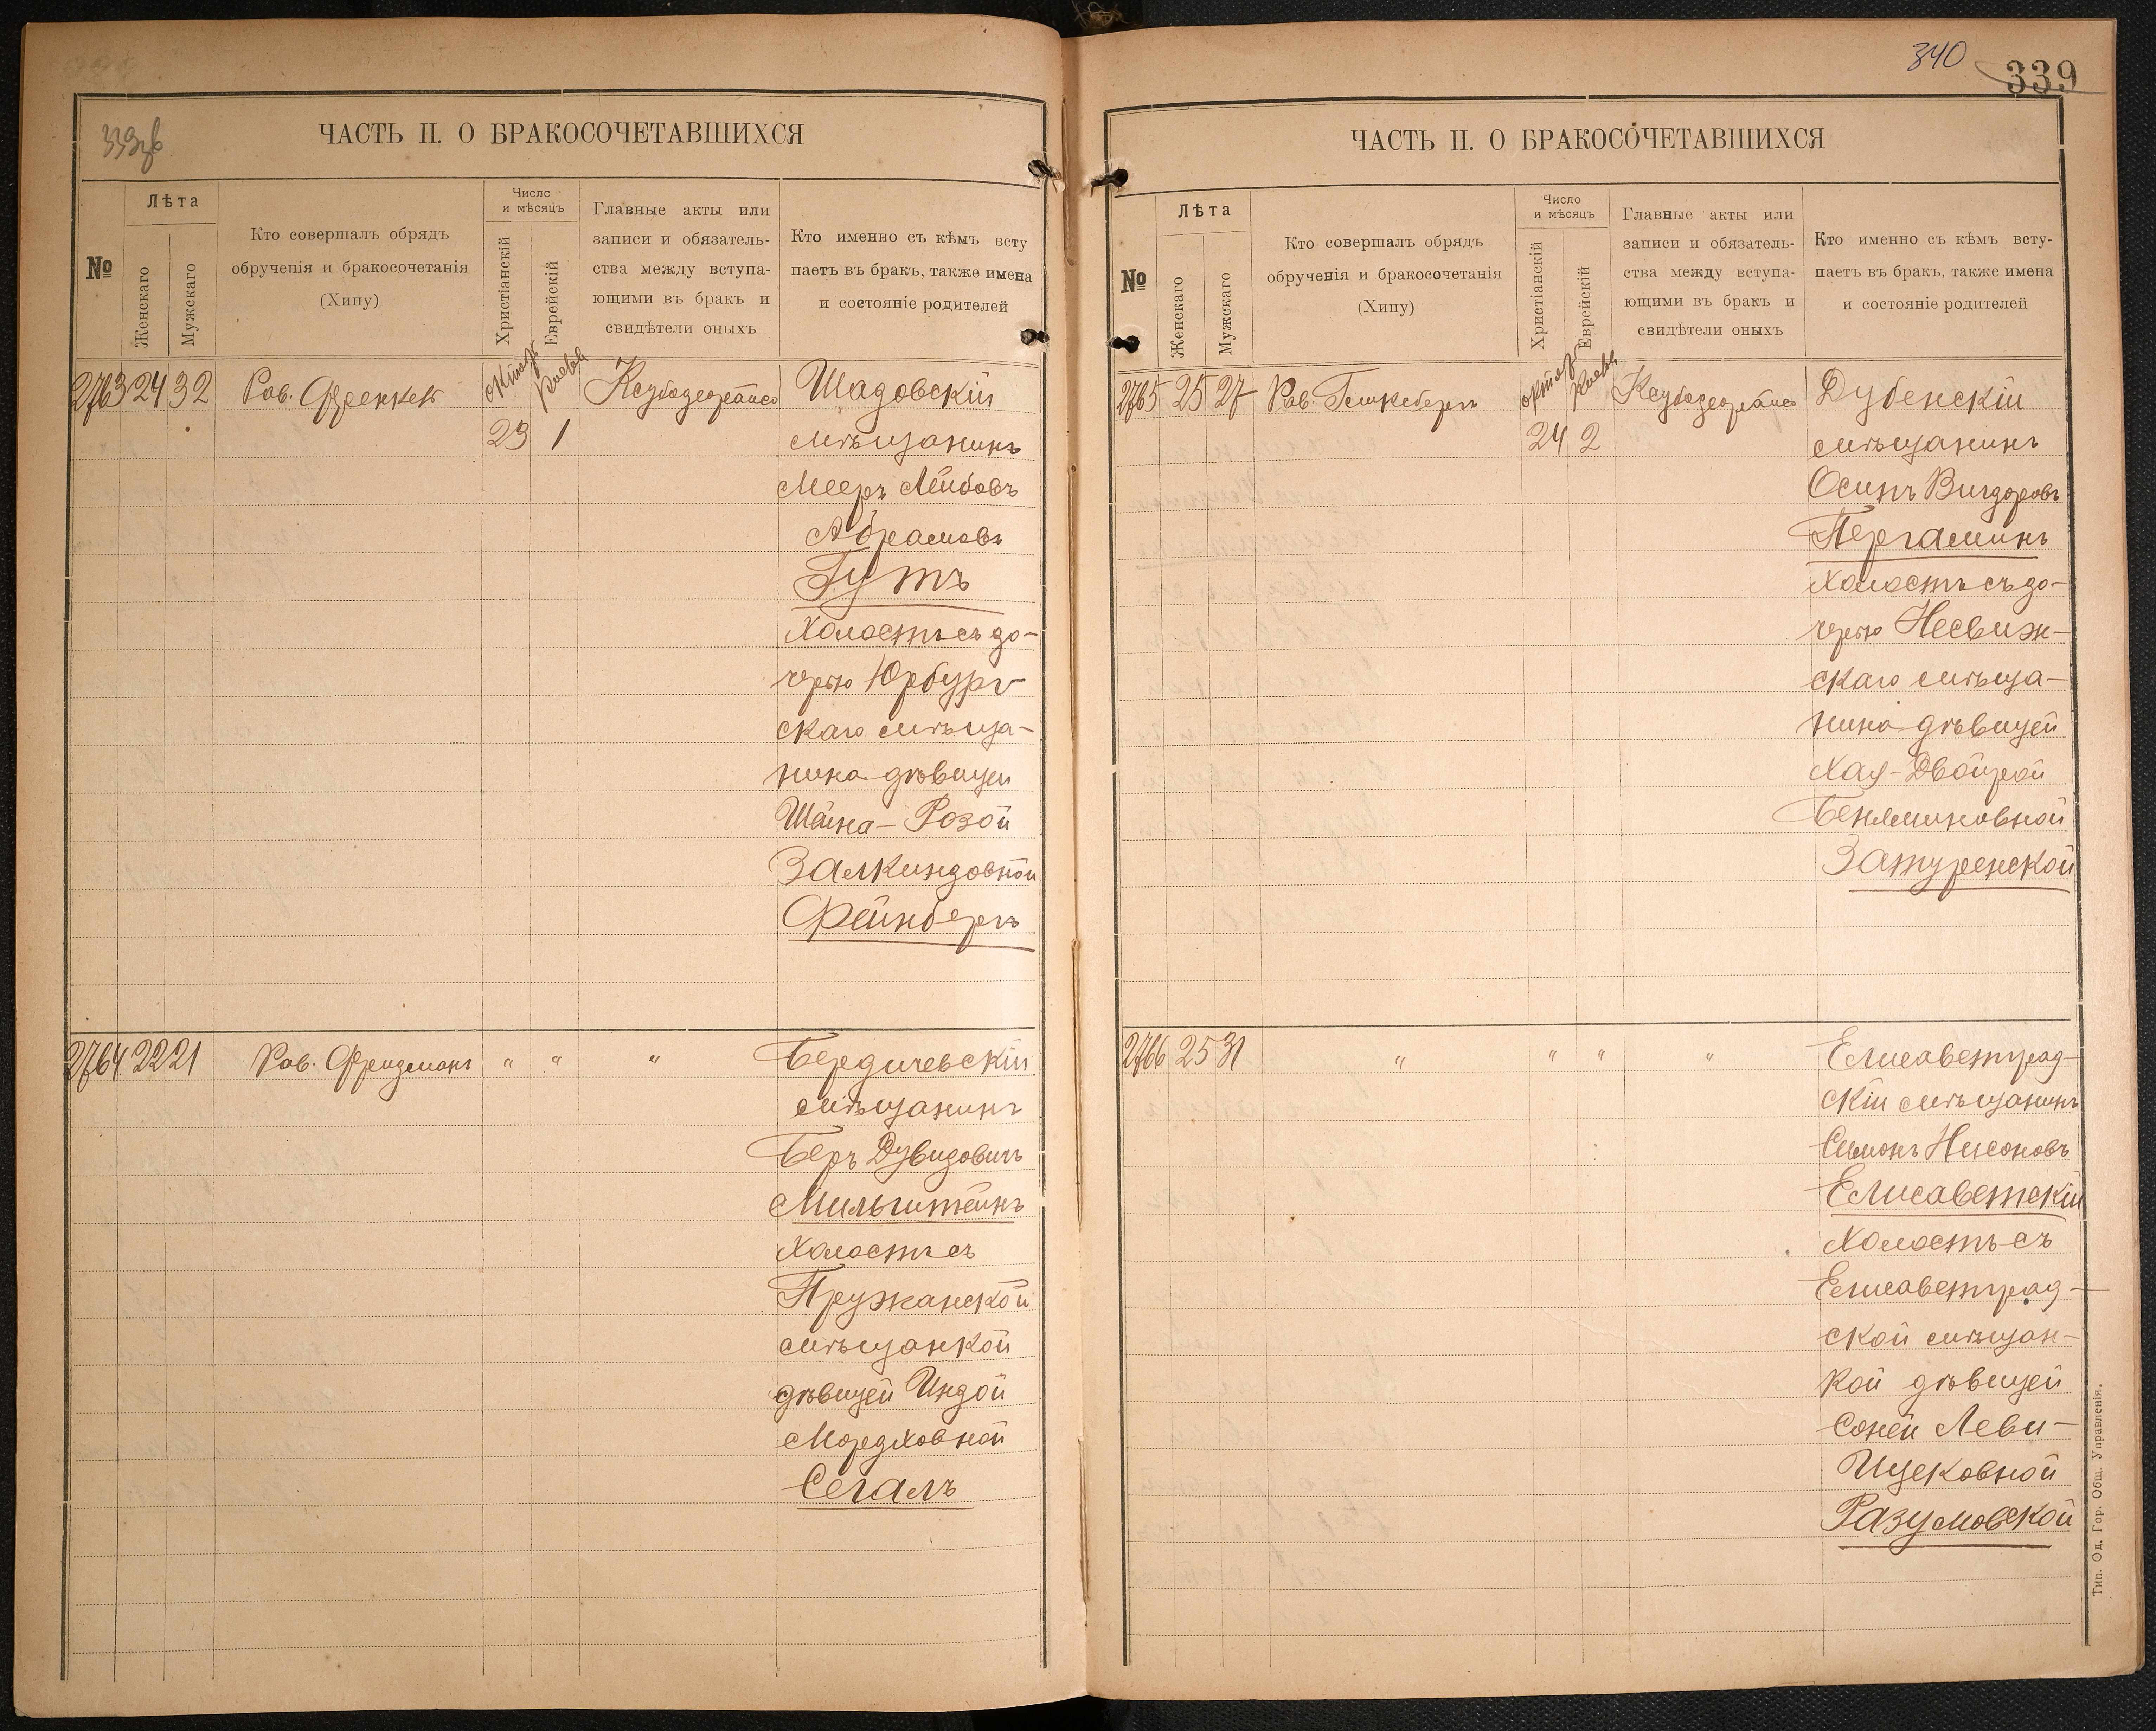 339об
ЧАСТЬ II. О БРАКОСОЧЕТАВШИХСЯ
№
Лѣта
Женскаго
Мужскаго
Кто совершалъ обрядъ
обрученія и бракосочетанія
(Хипу)
Число
и мѣсяцъ
Христіанскій
Еврейскій
Главные акты или
записи и обязатель-
ства между вступа-
ющими въ бракъ и
свидѣтели оныхъ
Кто именно съ кѣмъ всту
паетъ въ бракъ, также имена
и состояніе родителей
2763 24 32 Рав. Френкель
23 1
Шадовскій
мѣщанинъ
Мееръ Лейбовъ
Абрамовъ
Гутъ
холостъ съ до-
черью Юрбург
скаго мѣща-
нина дѣвицей
Шейна-Розой
Залкиндовной
Фейнбергъ
2764 22 21 Рав. Фридманъ " " "
Бердичевскій
мѣщанинъ
Беръ Дувидовичъ
Мильштейнъ
холостъ съ
Пружанской
мѣщанкой
дѣвицей Индой
Мордховной
Сегалъ
340
339
ЧАСТЬ II. О БРАКОСОЧЕТАВШИХСЯ
№
Лѣта
Женскаго
Мужскаго
Кто совершалъ обрядъ
обрученія и бракосочетанія
(Хипу)
Число
и мѣсяцъ
Христіанскій
Еврейскій
Главные акты или
записи и обязатель-
ства между вступа-
ющими въ бракъ и
свидѣтели оныхъ
Кто именно съ кѣмъ всту-
паетъ въ бракъ, также имена
и состояніе родителей
2765 25 27 Рав.
24 2
Дубенскій
мѣщанинъ
Осипъ Вигдоровъ
Пергаминъ
холостъ съ до-
черью Несвиж-
скаго мѣща-
нина дѣвицей
Хая-Двойрой
Беняминовной
Затуренской
2766 25 31 " " " "
Елисаветград-
скій мѣщанинъ
Симонъ Нисоновъ
Елисаветскій
холостъ съ
Елисаветград-
ской мѣщан-
кой дѣвицей
Соней Леви-
Ицековной
Разумовской
Тип. Од. Гор. Общ. Управленія.